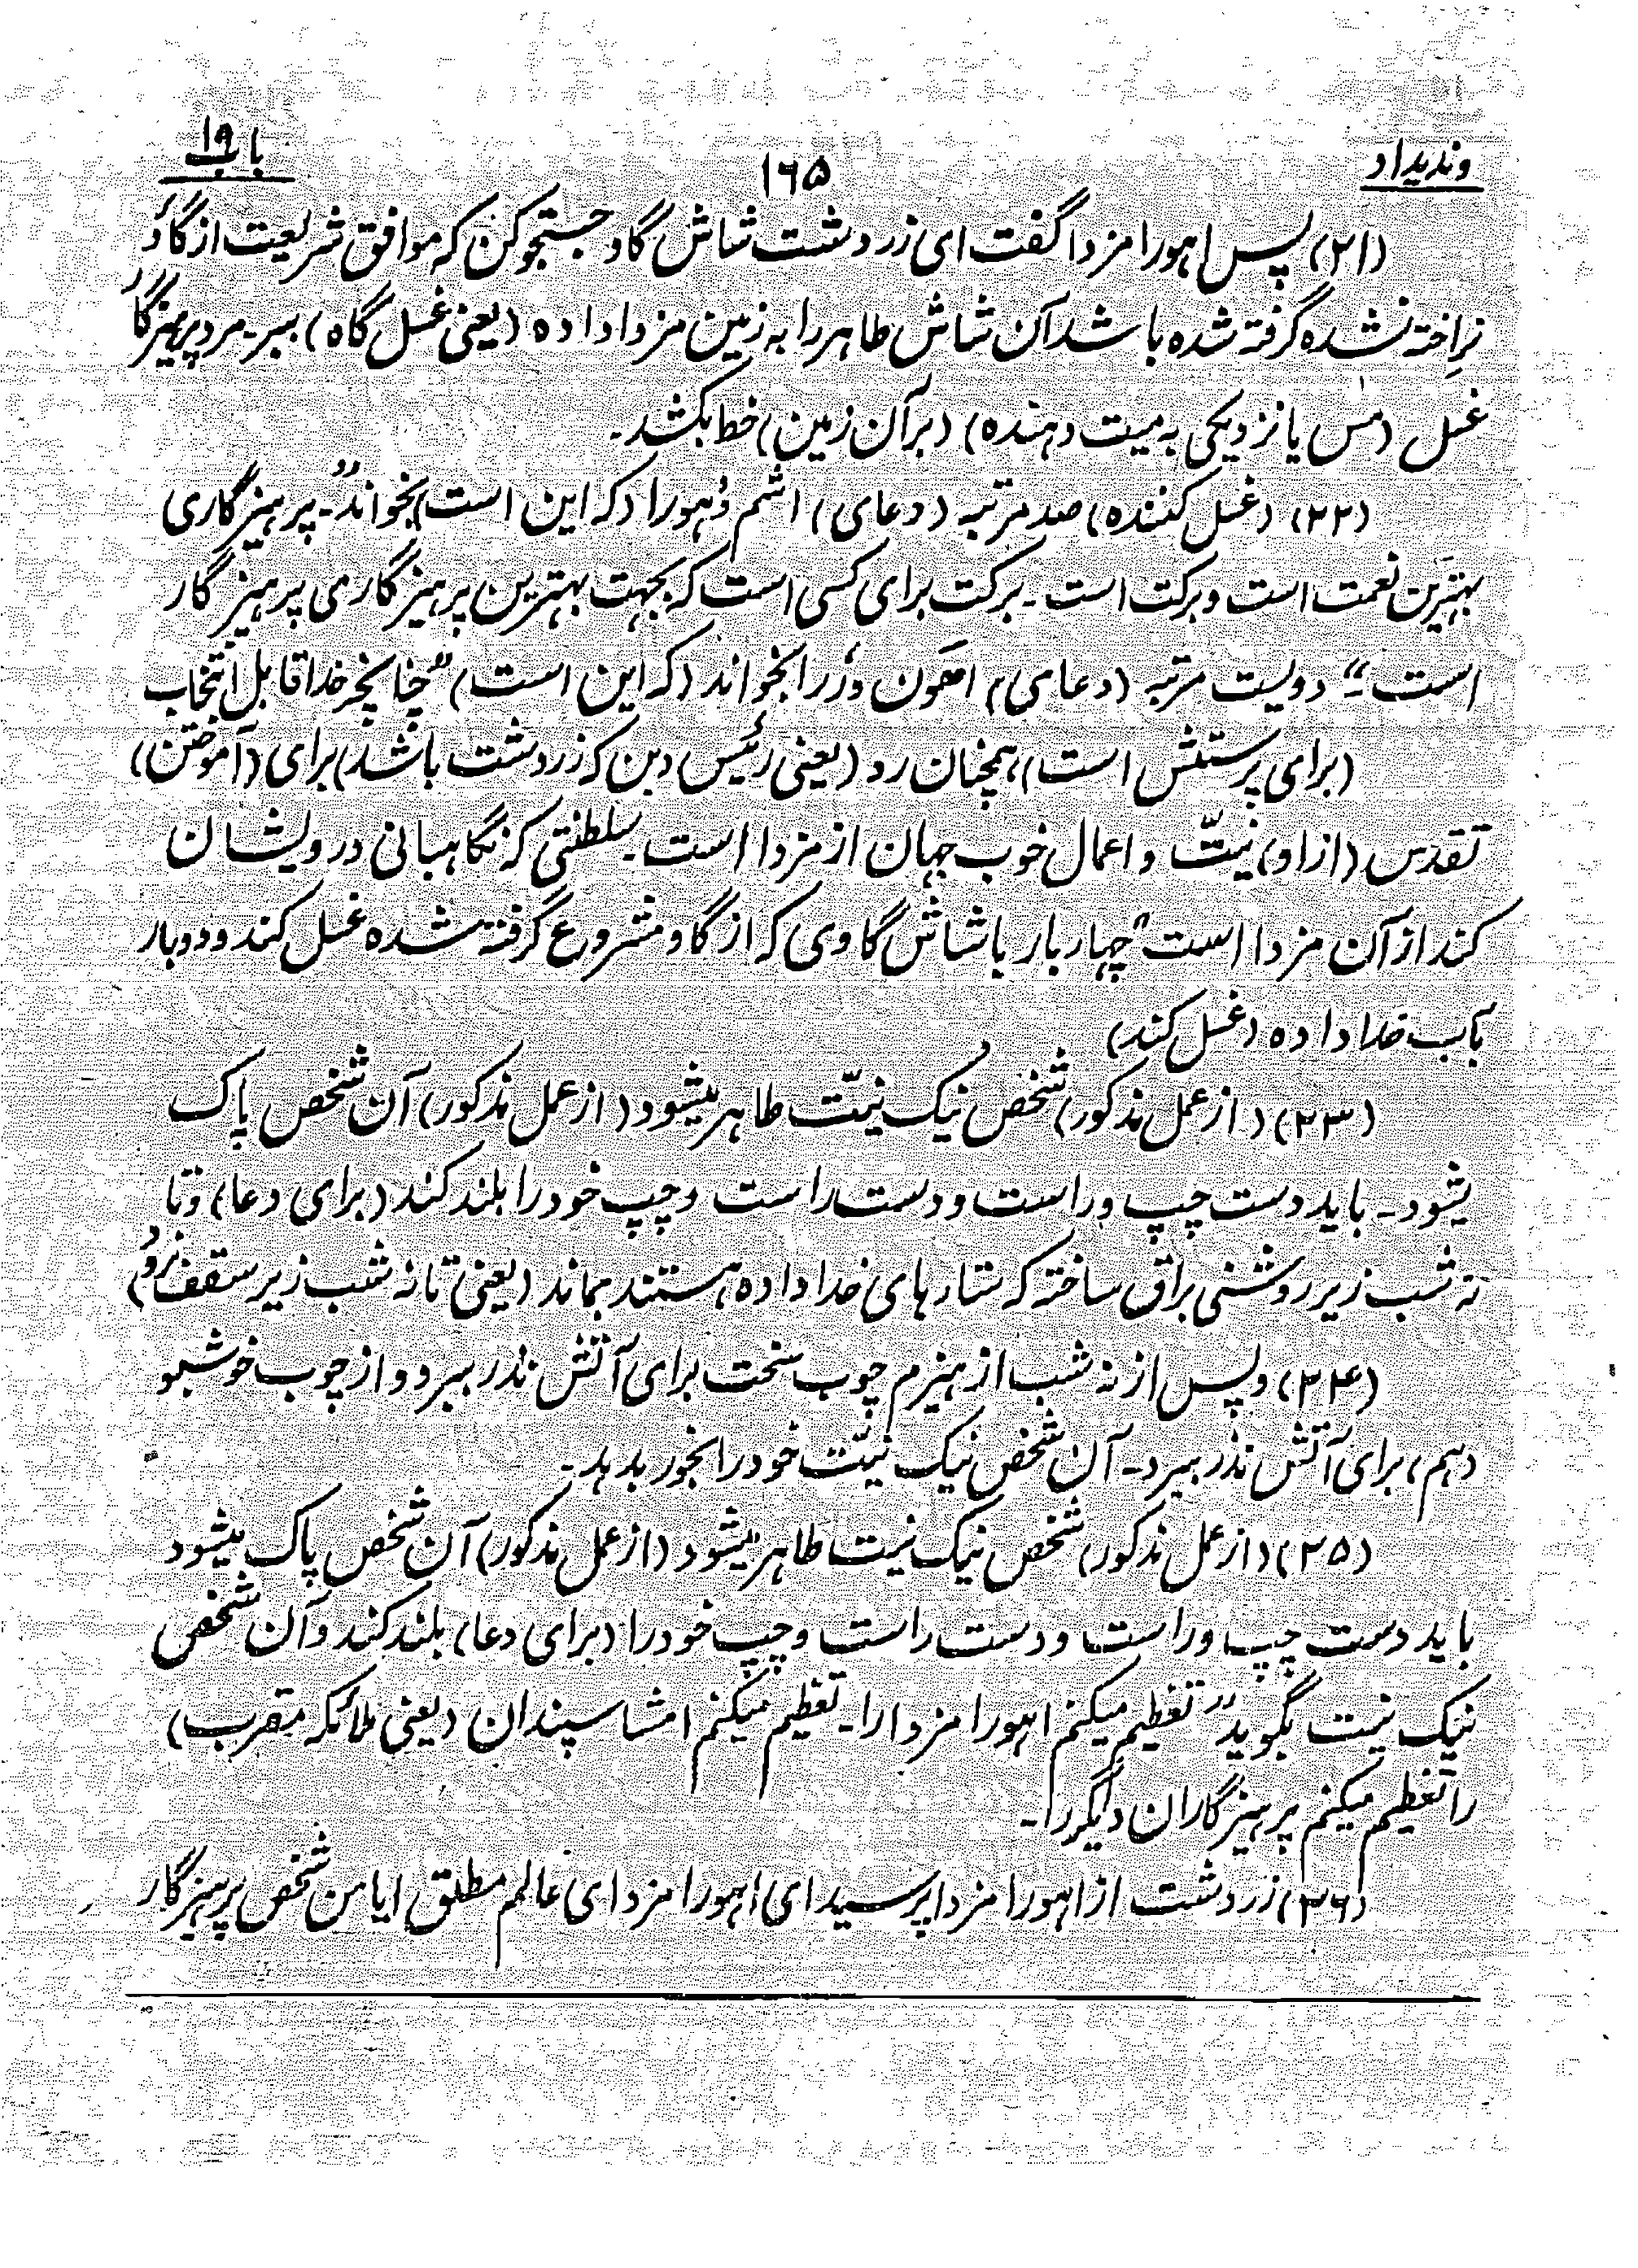 وندیداد
۱۶۵
باب ۱۹
(۲۱) پس اهورا مزدا گفت ای زردشت شاش گاو جستجو کن که موافق شریعت از گاو
نر اخته نشده گرفته شده باشد آن شاش طاهر را به زمین مزدا داده (یعنی غسل گاه) ببر - مرد پرهیزگار
غسل (مس یا نزدیکی به میت دهنده) (بر آن زمین) خط بکشد -
(۲۲) (غسل کننده) صد مرتبه (دعای) اشم وُهورا (که این است) بخواند "پرهیزگاری
بهترین نعمت است و برکت است - برکت برای کسی است که بجهت بهترین پرهیزگاری پرهیزگار
است" - دویست مرتبه (دعای) اهون وَرْ را بخواند (که این است) "چنانچه خدا قابل انتخاب
(برای پرستش است)، همچنان رد (یعنی رئیس دین که زردشت باشد) برای (آموختن)
تقدس (از او) نیّت و اعمال خوب جهان از مزدا است - سلطنتی که نگاهبانی درویشان
کند از آن مزدا است" چهار بار با شاش گاوی که از گاو مشروع گرفته شده غسل کند و دو بار
بآب خدا داده (غسل کند)
(۲۳) (از عمل مذکور) شخص نیک نیّت طاهر میشود (از عمل مذکور) آن شخص پاک
میشود - باید دست چپ و راست و دست راست و چپ خود را بلند کند (برای دعا) و تا
نه شب زیر روشنی براق ساخته که ستارهای خدا داده هستند بماند (یعنی تا نه شب زیر سقف نرود)
(۲۴) و پس از نه شب از هیزم چوب سخت برای آتش نذر ببرد و از چوب خوشبو
(هم) برای آتش نذر ببرد - آن شخص نیک نیّت خود را بخور بدهد -
(۲۵) (از عمل مذکور) شخص نیک نیت طاهر میشود (از عمل مذکور) آن شخص پاک میشود
باید دست چپ و راست و دست راست و چپ خود را (برای دعا) بلند کند و آن شخص
نیک نیت بگوید "تعظیم میکنم اهورا مزدا را - تعظیم میکنم امشاسپندان (یعنی ملائکه مقرب)
را تعظیم میکنم پرهیزگاران دیگر را -
(۲۶) زردشت از اهورا مزدا پرسید ای اهورا مزدا ای عالم مطلق ایا من شخص پرهیزگار